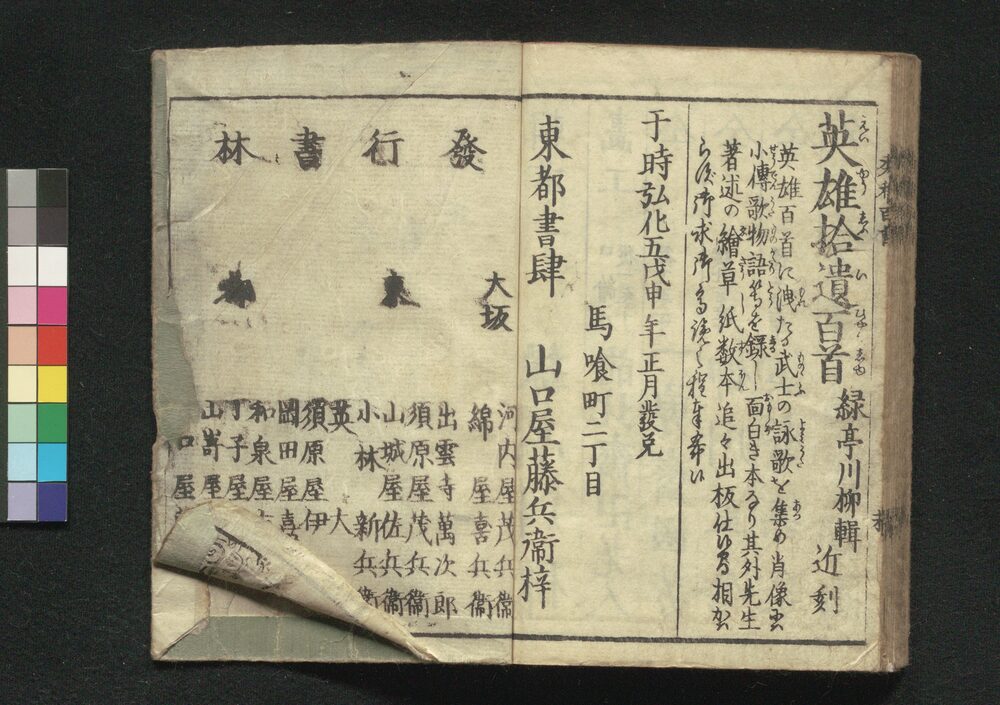 英雄拾遺百首 緑亭川柳輯 近刻
英雄百首に洩たる武士の詠歌を集め肖像
小傳歌物語等を録し面白き本なり其外先生
著述の繪草紙数本追々出板仕候間相
御求御
于時弘化五戊申年正月發兌
馬喰町二丁目
東都書肆 山口屋藤兵衞梓
發行書林
大坂
河内屋茂兵衞
綿屋喜兵衞
東
出雲寺萬次郎
須原屋茂兵衞
山城屋佐兵衞
小林新兵衞
英大
須原屋伊
岡田屋嘉
和泉屋
丁子屋
山嵜屋
口屋